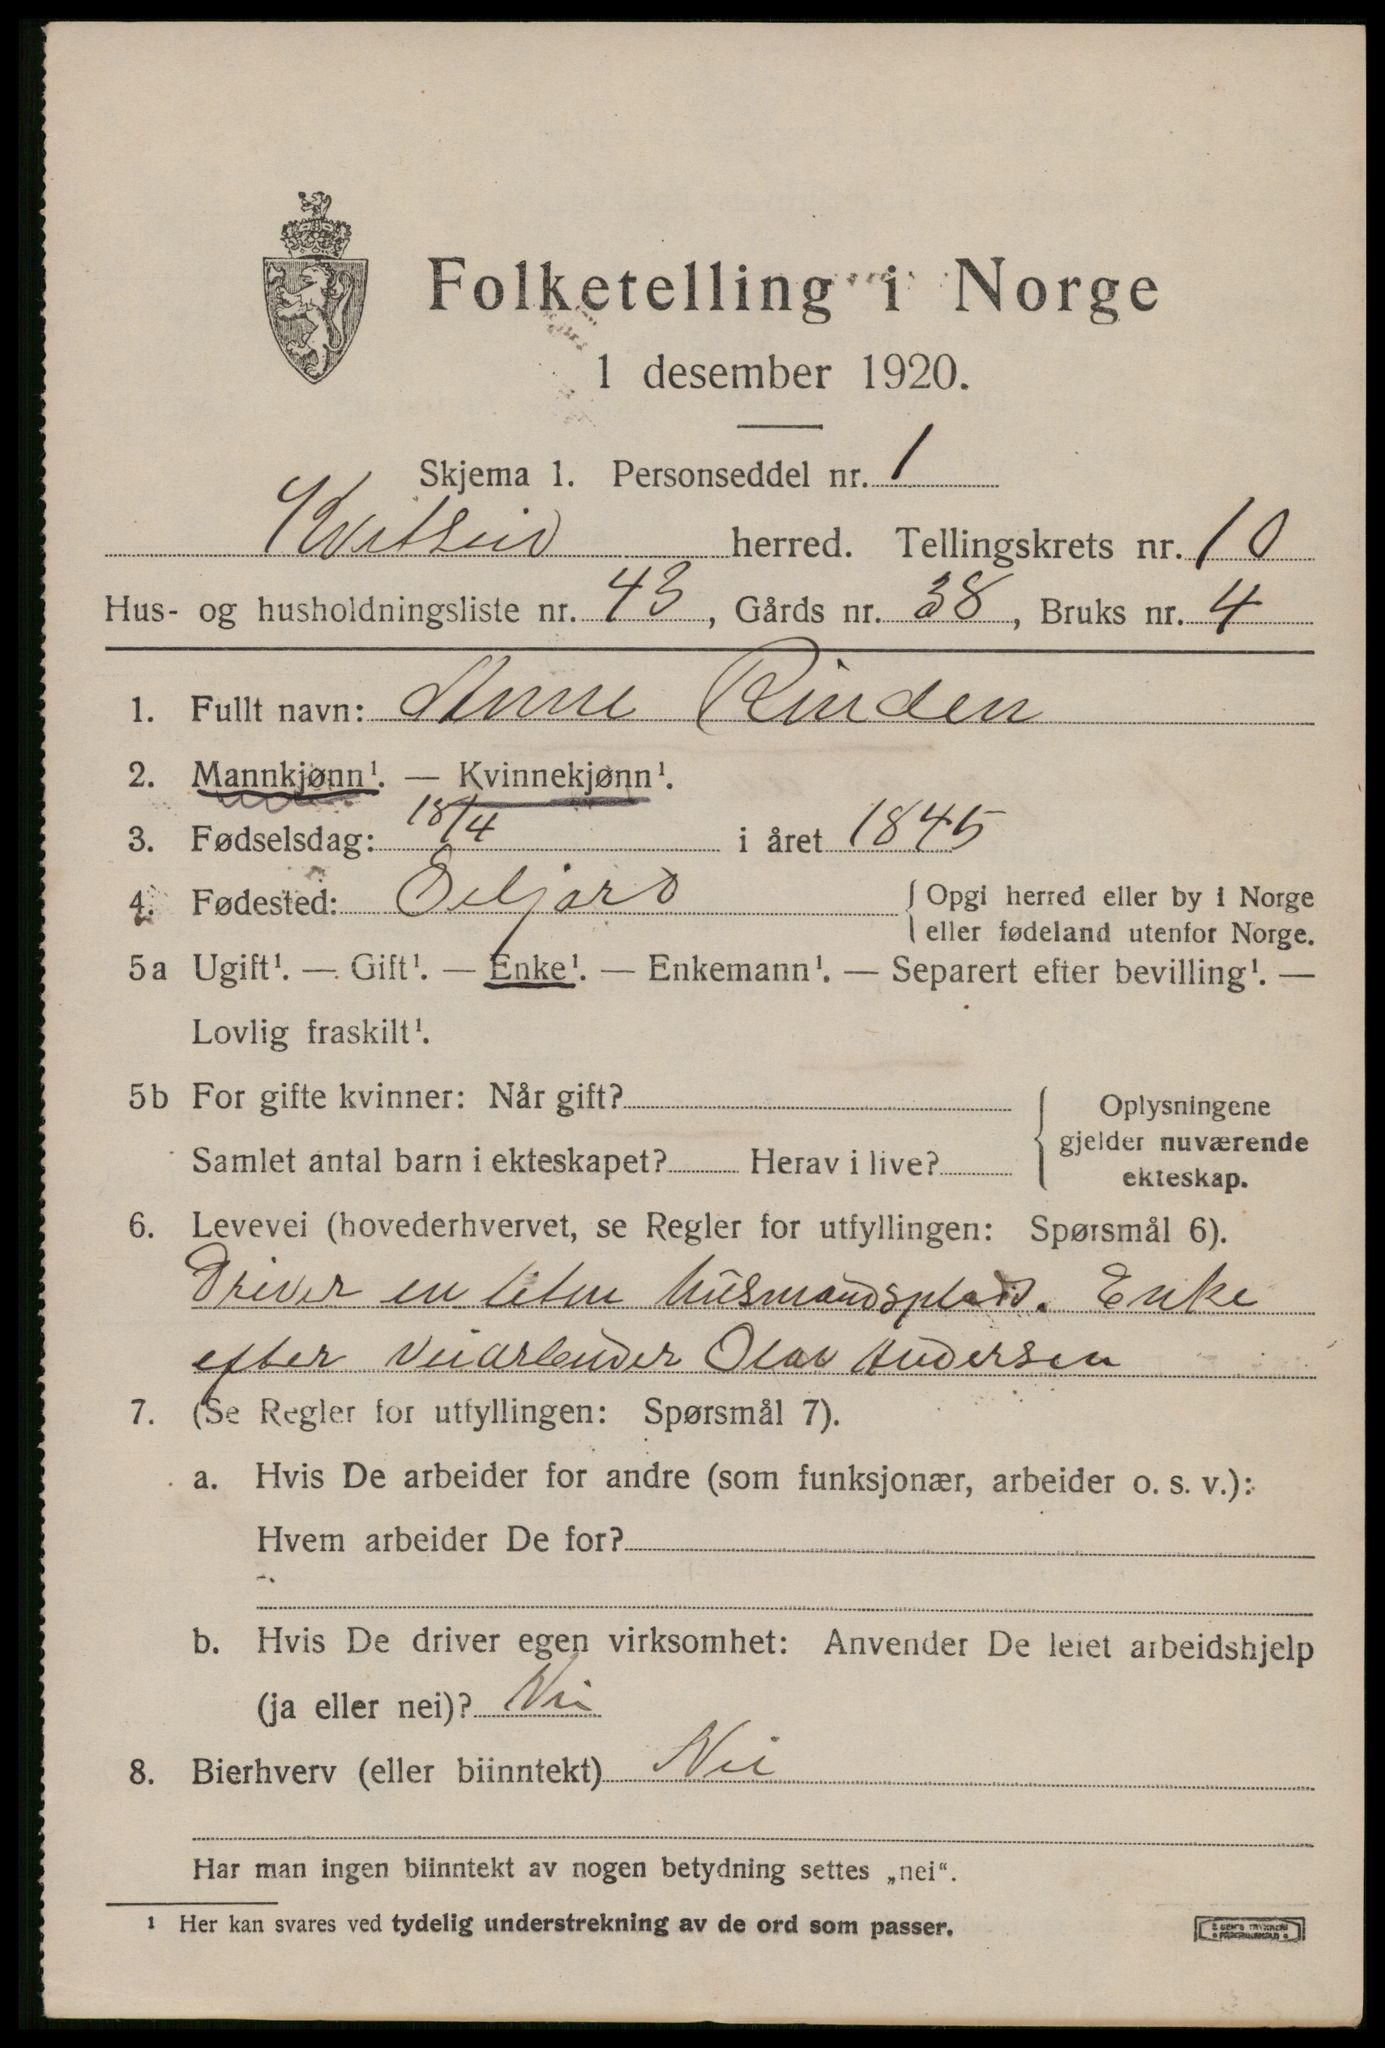 Folketelling i Norge
1 desember 1920.
Skjema 1. Personseddel nr. 1
Kvitseid herred. Tellingskrets nr. 10
Hus- og husholdningsliste nr. 43, Gårds nr. 38, Bruks nr. 4
1. Fullt navn: Anne Rinden
2. Mannkjønn¹. — Kvinnekjønn¹.
3. Fødselsdag: 18/4 i året 1845
4. Fødested: Seljord { Opgi herred eller by i Norge
eller fødeland utenfor Norge.
5a Ugift¹. — Gift¹. — Enke¹. — Enkemann¹. — Separert efter bevilling¹. —
Lovlig fraskilt¹.
5b For gifte kvinner: Når gift?
Samlet antal barn i ekteskapet? Herav i live?
{ Oplysningene
gjelder nuværende
ekteskap.
6. Levevei (hovederhvervet, se Regler for utfyllingen: Spørsmål 6).
Driver en liten husmandsplads. Enke
efter veiarbeider Olav Andersen
7. (Se Regler for utfyllingen: Spørsmål 7).
a. Hvis De arbeider for andre (som funksjonær, arbeider o. s. v.):
Hvem arbeider De for?
b. Hvis De driver egen virksomhet: Anvender De leiet arbeidshjelp
(ja eller nei)? Nei
8. Bierhverv (eller biinntekt) Nei
Har man ingen biinntekt av nogen betydning settes „nei“.
¹ Her kan svares ved tydelig understrekning av de ord som passer.